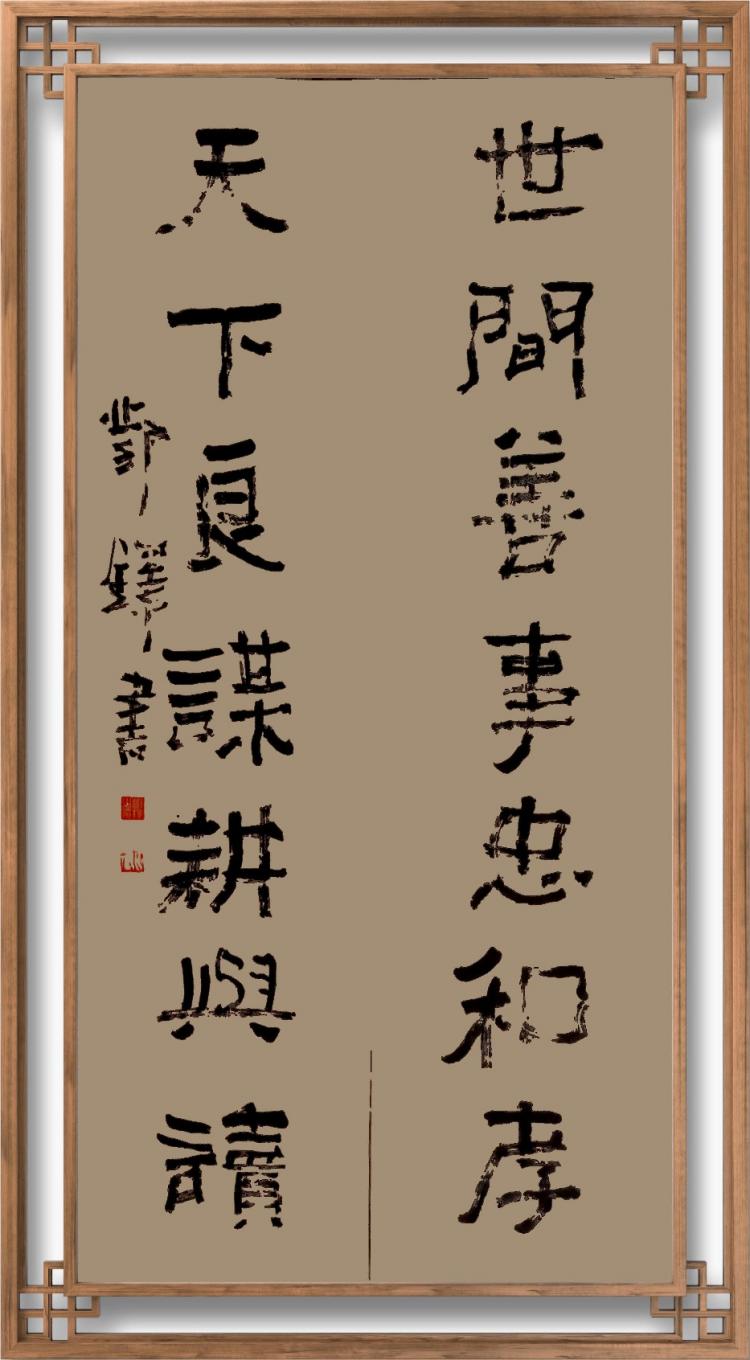 世間善事忠和孝
天下良謀耕與讀
鄧鐸書